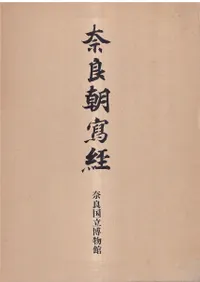 奈良朝寫経
奈良国立博物館